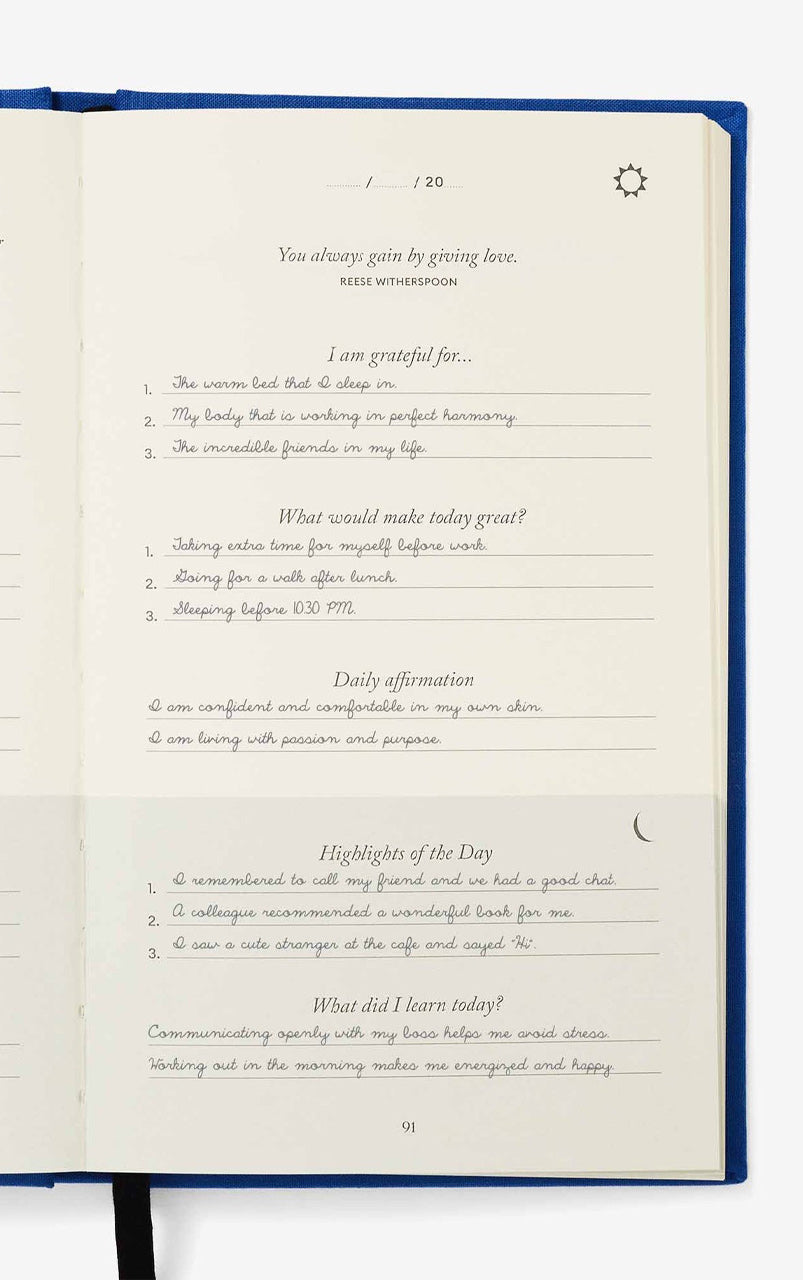 / / 20
You always gain by giving love.
REESE WITHERSPOON
I am grateful for...
1. The warm bed that I sleep in.
2. My body that is working in perfect harmony.
3. The incredible friends in my life.
What would make today great?
1. Taking extra time for myself before work.
2. Going for a walk after lunch.
3. Sleeping before 10:30 PM.
Daily affirmation
I am confident and comfortable in my own skin.
I am living with passion and purpose.
Highlights of the Day
1. I remembered to call my friend and we had a good chat.
2. A colleague recommended a wonderful book for me.
3. I saw a cute stranger at the cafe and sayed "Hi".
What did I learn today?
Communicating openly with my boss helps me avoid stress.
Working out in the morning makes me energized and happy.
91